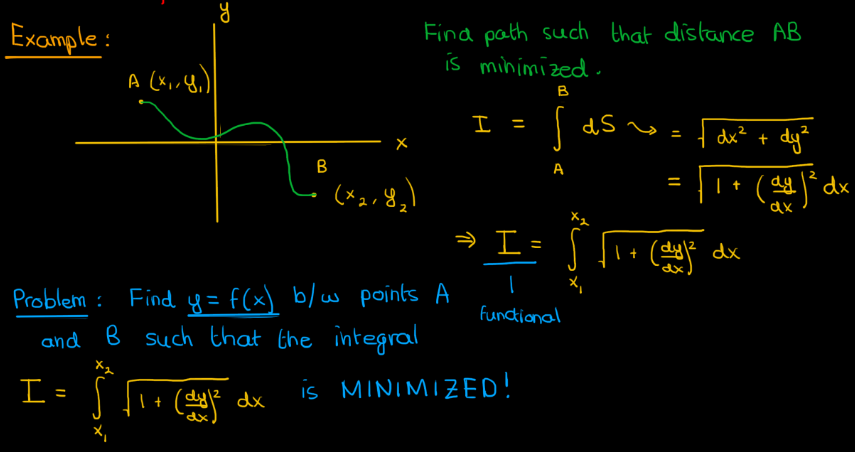 Example:
y
A (x₁, y₁)
x
B
(x₂, y₂)
Find path such that distance AB
is minimized.
I = ∫_A^B dS ⇝ = √(dx² + dy²)
= √(1 + (dy/dx)²) dx
⇒ I = ∫_{x₁}^{x₂} √(1 + (dy/dx)²) dx
functional
Problem: Find y = f(x) b/w points A
and B such that the integral
I = ∫_{x₁}^{x₂} √(1 + (dy/dx)²) dx is MINIMIZED!